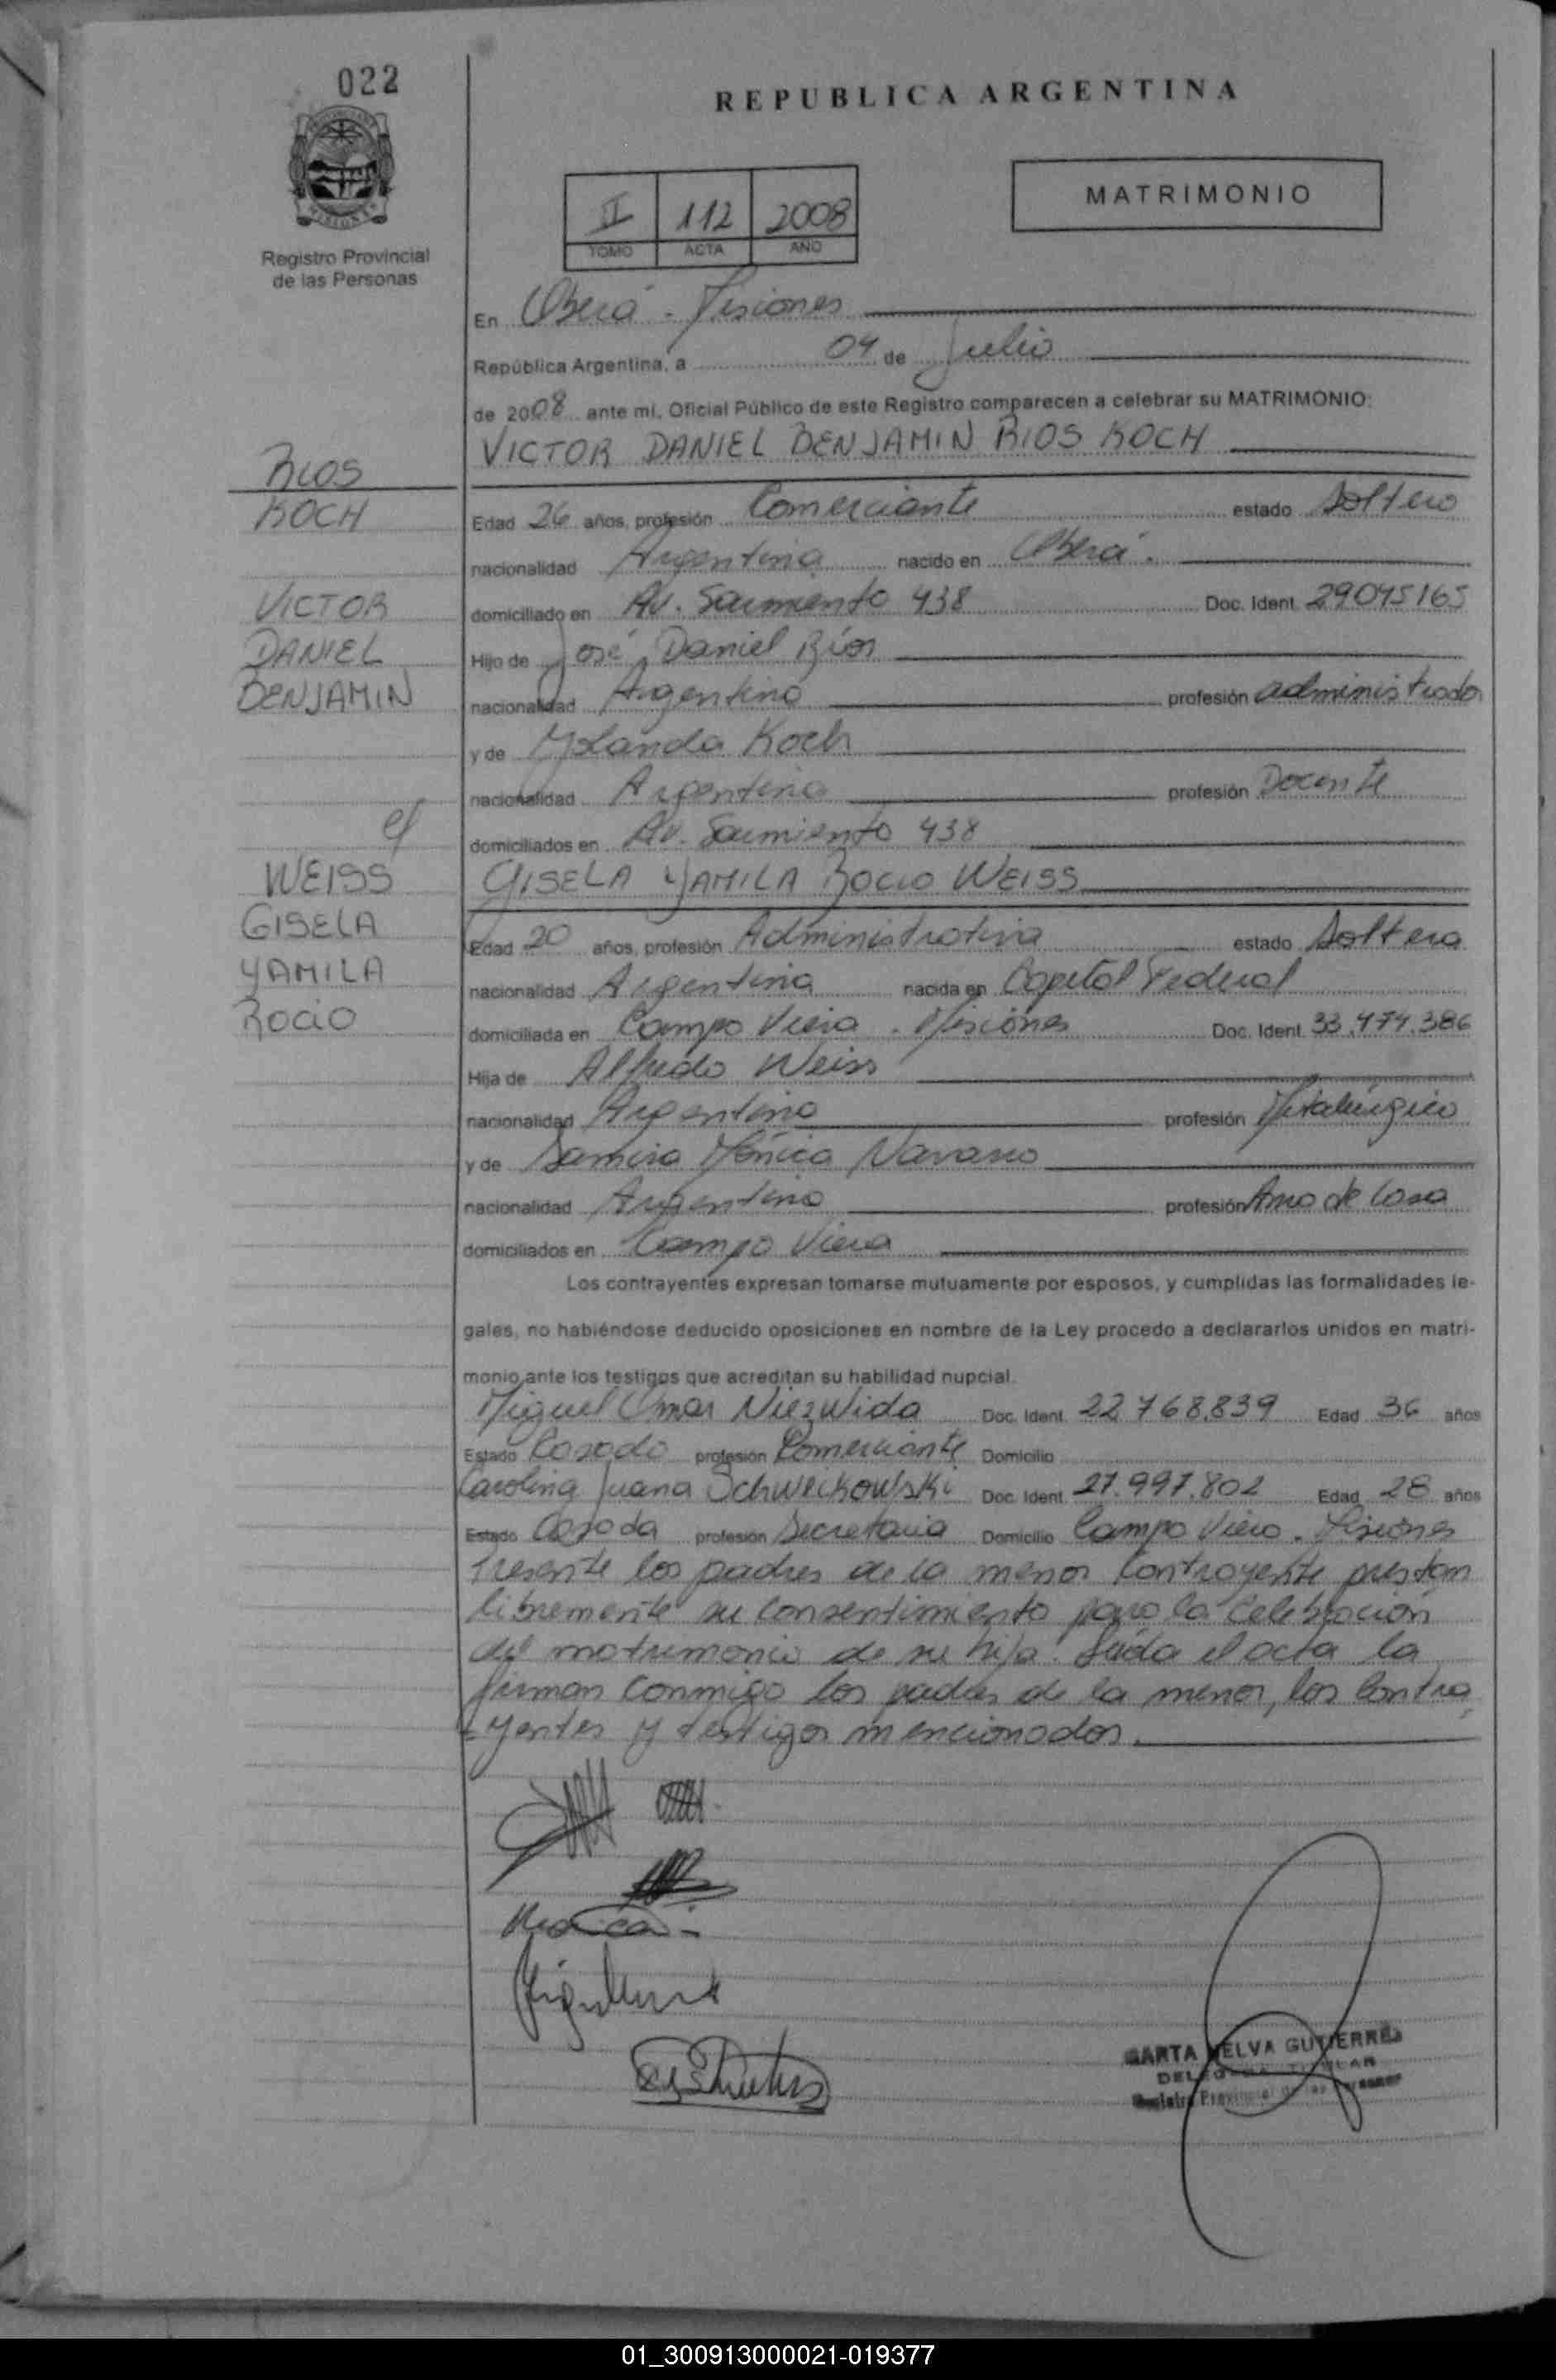 022
REPUBLICA ARGENTINA
II 112 2008
TOMO ACTA AÑO
MATRIMONIO
Registro Provincial
de las Personas
En Oberá - Misiones
República Argentina, a 04 de Julio
de 2008 ante mi, Oficial Público de este Registro comparecen a celebrar su MATRIMONIO:
VICTOR DANIEL BENJAMIN RIOS KOCH
RIOS
KOCH
VICTOR
DANIEL
BENJAMIN
Edad 26 años, profesión Comerciante estado Soltero
nacionalidad Argentina nacido en Oberá.
domiciliado en Av. Sarmiento 438 Doc. Ident. 29045165
Hijo de José Daniel Ríos
nacionalidad Argentina profesión administrador
y de Yolanda Koch
nacionalidad Argentina profesión Docente
domiciliados en Av. Sarmiento 438
WEISS
GISELA
YAMILA
ROCIO
GISELA YAMILA ROCIO WEISS
Edad 20 años, profesión Administrativa estado Soltera
nacionalidad Argentina nacida en Capital Federal
domiciliada en Campo Viera. Misiones Doc. Ident. 33.474.386
Hija de Alfredo Weiss
nacionalidad Argentina profesión Metalúrgico
y de Mónica Navarro
nacionalidad Argentina profesión Ama de Casa
domiciliados en Campo Viera
Los contrayentes expresan tomarse mutuamente por esposos, y cumplidas las formalidades le-
gales, no habiéndose deducido oposiciones en nombre de la Ley procedo a declararlos unidos en matri-
monio ante los testigos que acreditan su habilidad nupcial.
Miguel Omar Niezwida Doc. Ident. 22.768.839 Edad 36 años
Estado Casado profesión Comerciante Domicilio
Carolina Juana Schweikowski Doc. Ident. 27.997.802 Edad 28 años
Estado Casada profesión Secretaria Domicilio Campo Viera. Misiones
Presente los padres de la menor contrayente prestan
libremente su consentimiento para la celebración
del matrimonio de su hija. Leída el acta la
firman conmigo los padres de la menor, los contra
-yentes y testigos mencionados.
MARTA NELVA GUTIERREZ
DELEGADA TITULAR
Registro Provincial de las Personas
01_300913000021-019377